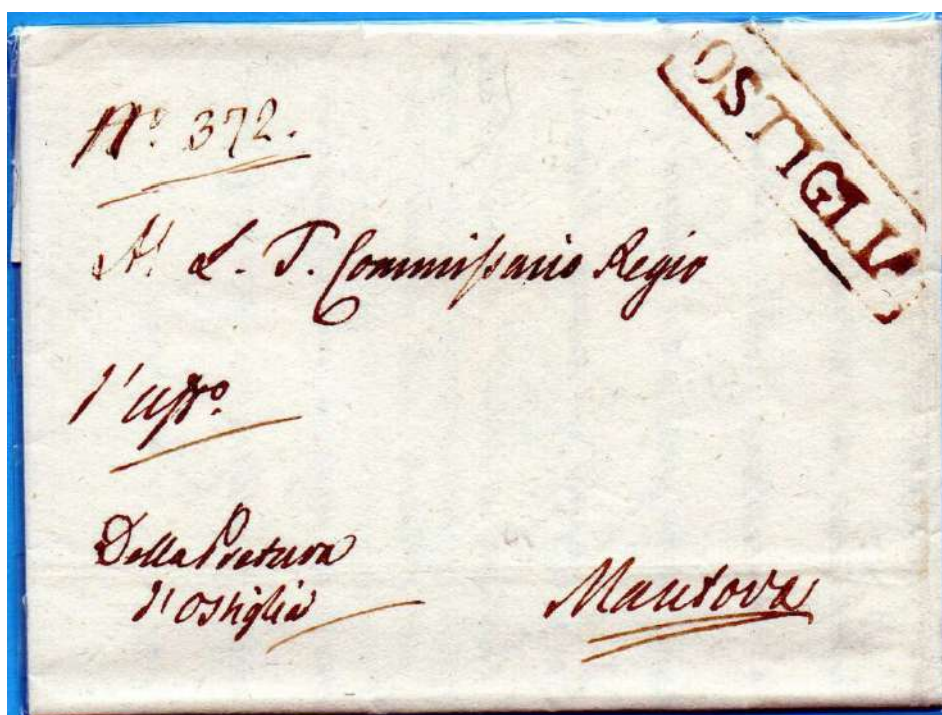 OSTIGLIA
N.º 372.
Al L. T. Commissario Regio
d'uffº.
Della Pretura
d'Ostiglia
Mantova